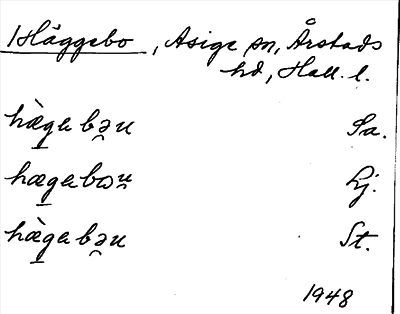 Häggebo, Asige sn, Årstads
hd, Hall. l.
hæ̀gabə̯u Sa.
hægabωu̯ Lj.
hæ̀gabə̯u St.
1948